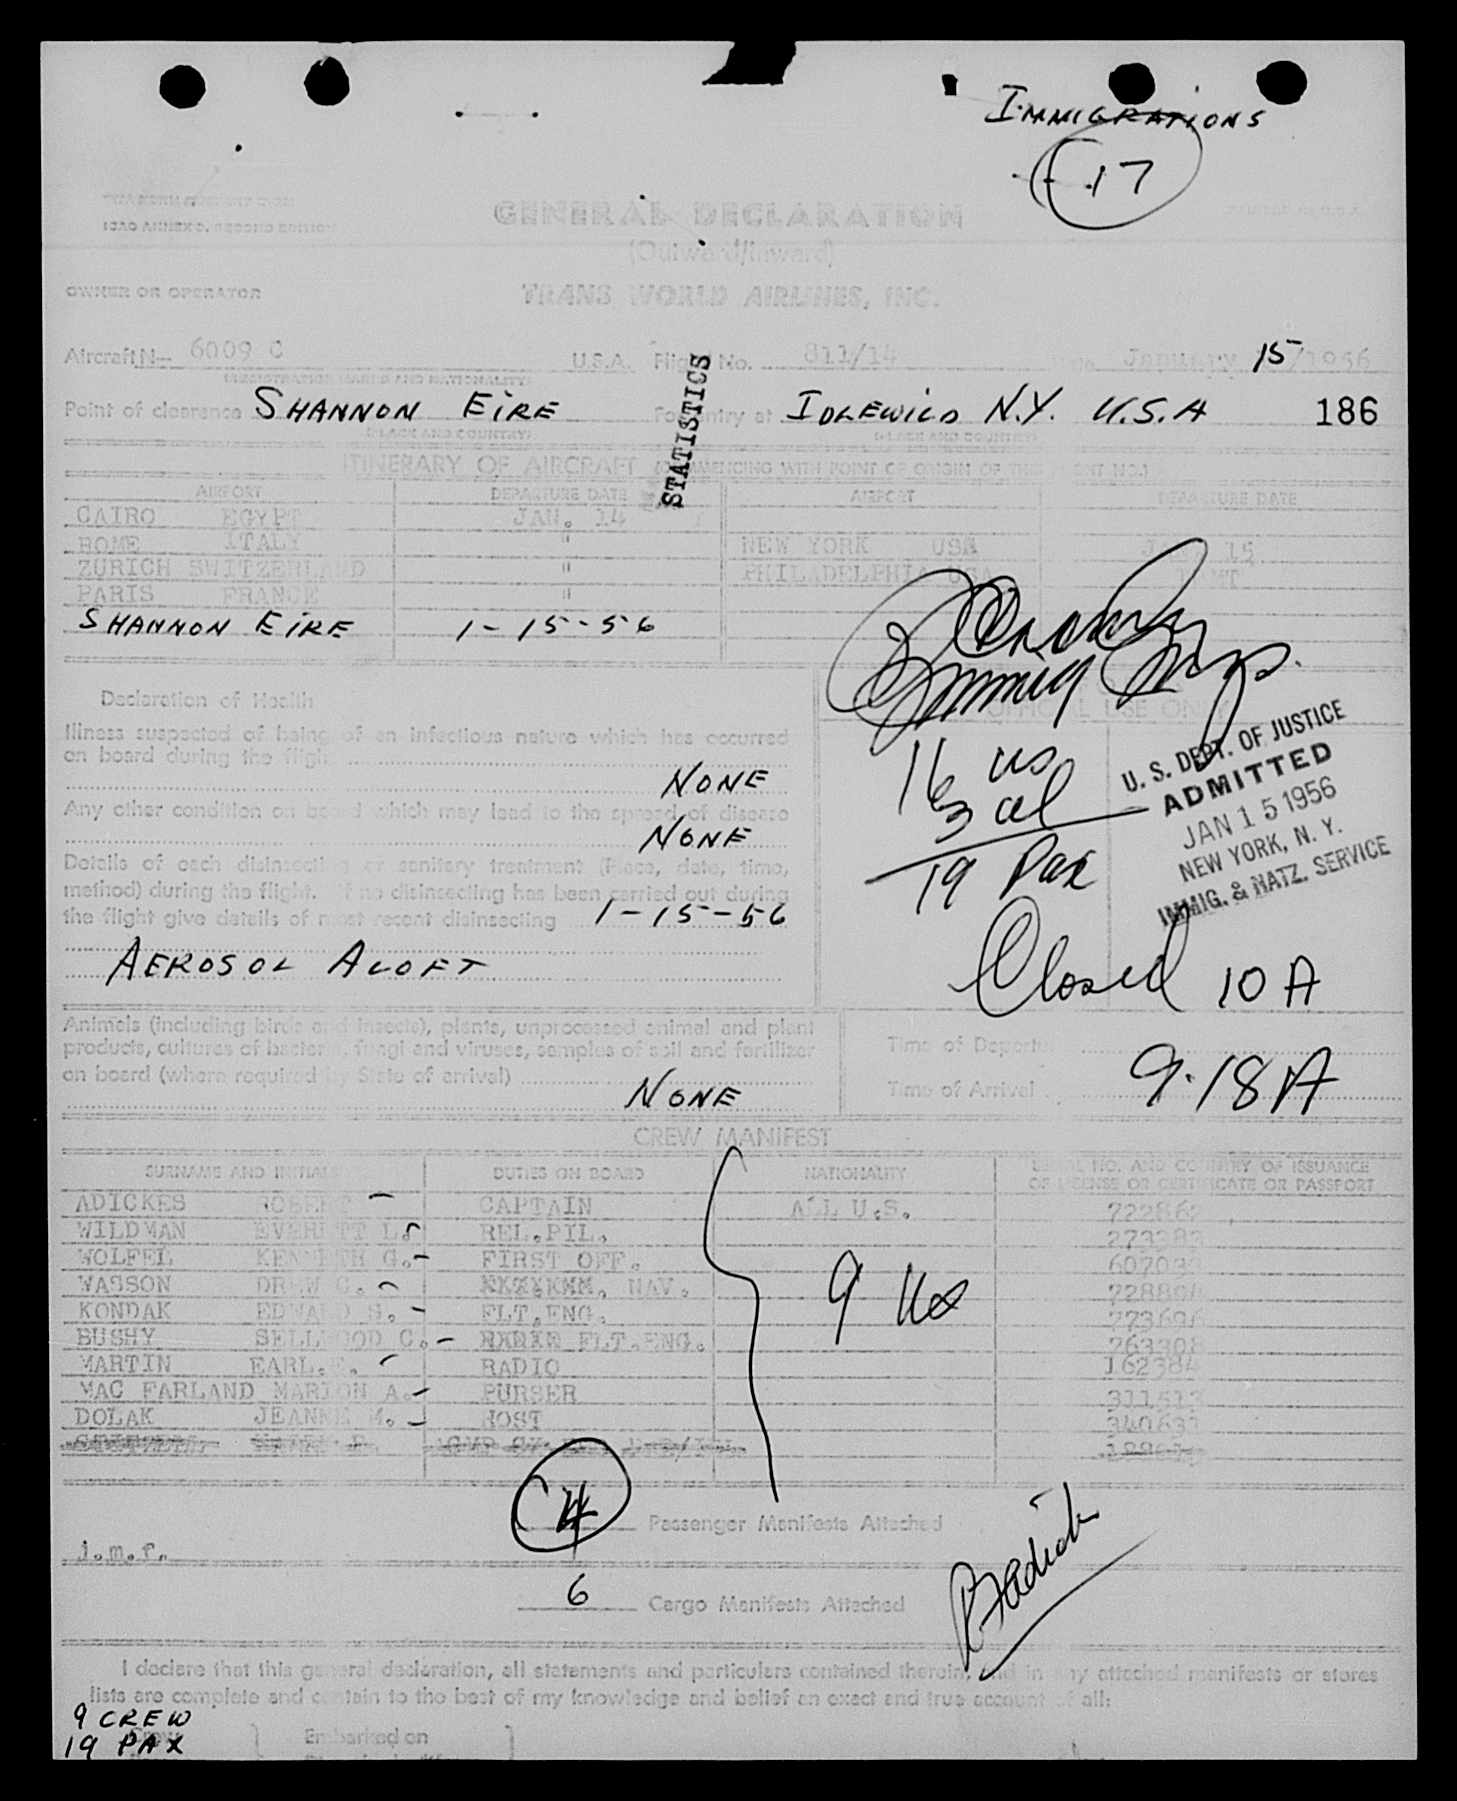 IMMIGRATIONS
17
ICAO ANNEX 9, SECOND EDITION
GENERAL DECLARATION
(Outward/Inward)
OWNER OR OPERATOR TRANS WORLD AIRLINES, INC.
Aircraft N- 6009 C U.S.A. Flight No. 811/14 Date January 15/1956
(REGISTRATION MARKS AND NATIONALITY)
Point of clearance SHANNON EIRE For entry at IDLEWILD N.Y. U.S.A 186
(PLACE AND COUNTRY) (PLACE AND COUNTRY)
STATISTICS
ITINERARY OF AIRCRAFT (COMMENCING WITH POINT OF ORIGIN OF THE FLIGHT NO.)
AIRPORT DEPARTURE DATE AIRPORT DEPARTURE DATE
CAIRO EGYPT JAN. 14
ROME ITALY " NEW YORK USA JAN 15
ZURICH SWITZERLAND " PHILADELPHIA USA TMT
PARIS FRANCE "
SHANNON EIRE 1-15-56
Immig Insp.
Declaration of Health
OFFICIAL USE ONLY
Illness suspected of being of an infectious nature which has occurred
on board during the flight
NONE
Any other condition on board which may lead to the spread of disease
NONE
Details of each disinsecting or sanitary treatment (Place, date, time,
method) during the flight. If no disinsecting has been carried out during
the flight give details of most recent disinsecting 1-15-56
AEROSOL ALOFT
16 us
3 al
19 Pax
Closed 10 A
U. S. DEPT. OF JUSTICE
ADMITTED
JAN 15 1956
NEW YORK, N. Y.
IMMIG. & NATZ. SERVICE
Animals (including birds and insects), plants, unprocessed animal and plant
products, cultures of bacteria, fungi and viruses, samples of soil and fertilizer
on board (where required by State of arrival)
NONE
Time of Departure
Time of Arrival 9.18 A
CREW MANIFEST
SURNAME AND INITIALS DUTIES ON BOARD NATIONALITY SERIAL NO. AND COUNTRY OF ISSUANCE
OF LICENSE OR CERTIFICATE OR PASSPORT
ADICKES ROBERT CAPTAIN ALL U.S.
WILDMAN EVERETT L REL.PIL.
WOLFEL KENNETH G. FIRST OFF.
WASSON DREW C. NAV.
KONDAK EDWARD S. FLT.ENG.
BUSHY SELLWOOD C. FLT.ENG.
MARTIN EARL. RADIO 162384
MAC FARLAND MARION A. PURSER 311513
DOLAK JEANNE M. HOST 340637
9 us
4 Passenger Manifests Attached
j.m.f.
6 Cargo Manifests Attached
I declare that this general declaration, all statements and particulars contained therein, and in any attached manifests or stores
lists are complete and contain to the best of my knowledge and belief an exact and true account of all:
9 CREW
Crew Embarked on
19 PAX